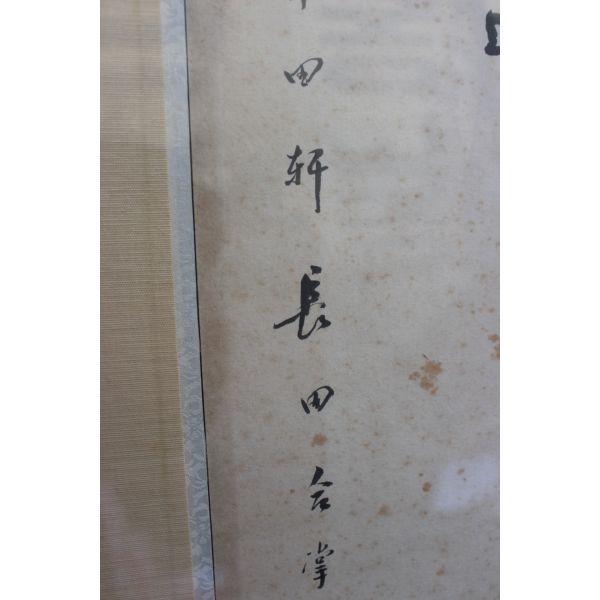 田軒長田合掌